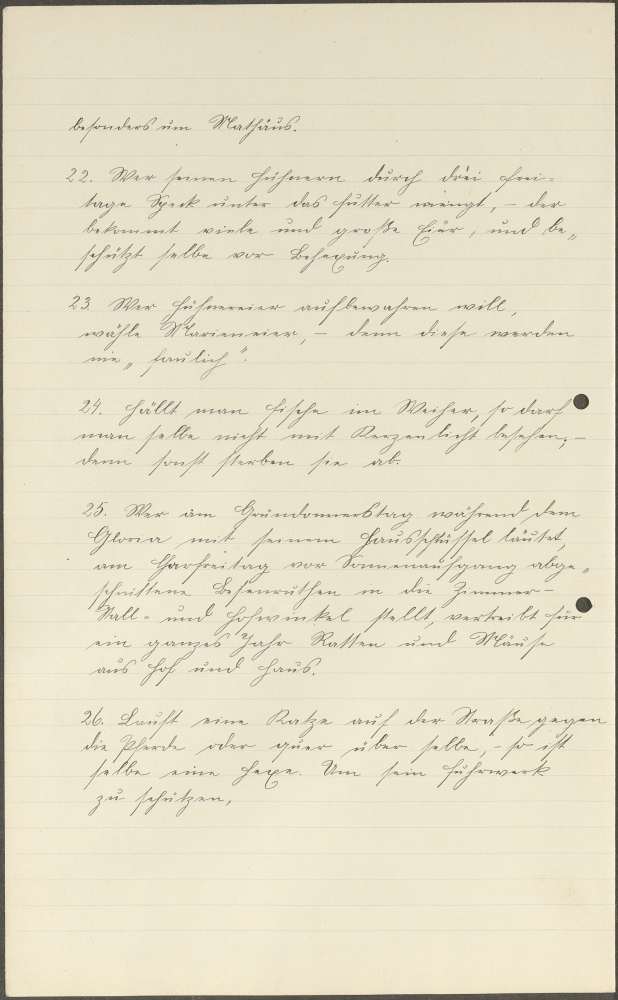 besonders um Mathäus.
22. Wer seinen Hühnern durch drei Frei-
tage Speck unter das Futter mengt, – der
bekommt viele und große Eier, und be„
schützt selbe vor Behexung.
23. Wer Hühnereier aufbewahren will,
wähle Marieneier, – denn diese werden
nie „faulich“.
24. Hällt man Fische im Weiher, so darf
man selbe nicht mit Kerzenlicht besehen, –
denn sonst sterben sie ab.
25. Wer am Gründonnerstag während dem
Gloria mit seinem Hausschlüssel läutet,
am Charfreitag vor Sonnenaufgang abge„
schnittene Besenruthen in die Zimmer-
Stall- und Hofwinkel stellt, vertreibt für
ein ganzes Jahr Ratten und Mäuse
aus Hof und Haus.
26. Lauft eine Katze auf der Straße gegen
die Pferde oder quer über selbe, – so ist
selbe eine Hexe. Um sein Fuhrwerk
zu schützen,